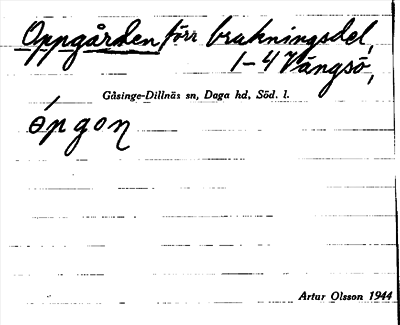 Oppgården förr brukningsdel,
1-4 Vängsö,
Gåsinge-Dillnäs sn, Daga hd, Söd. l.
ópgon
Artur Olsson 1944